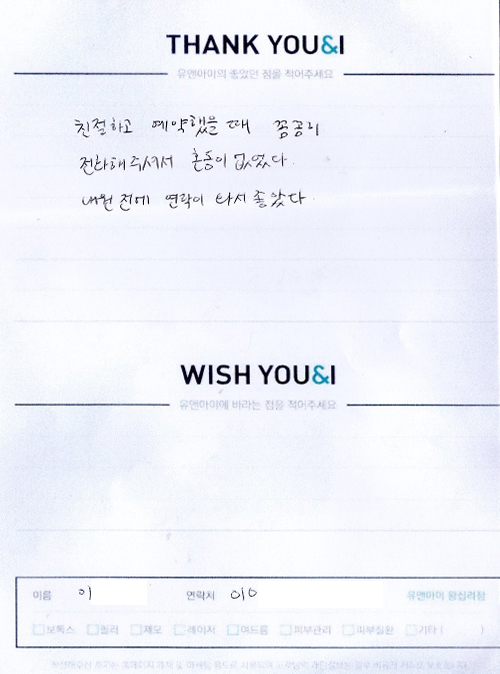 THANK YOU&I
유앤아이의 좋았던 점을 적어주세요
친절하고 예약했을 때 꼼꼼히
전화해주셔서 혼동이 없었다.
내원 전에 연락이 와서 좋았다.
WISH YOU&I
유앤아이에 바라는 점을 적어주세요
이름 이 연락처 010 유앤아이 왕십리점
보톡스 필러 제모 레이저 여드름 피부관리 피부질환 기타 ( )